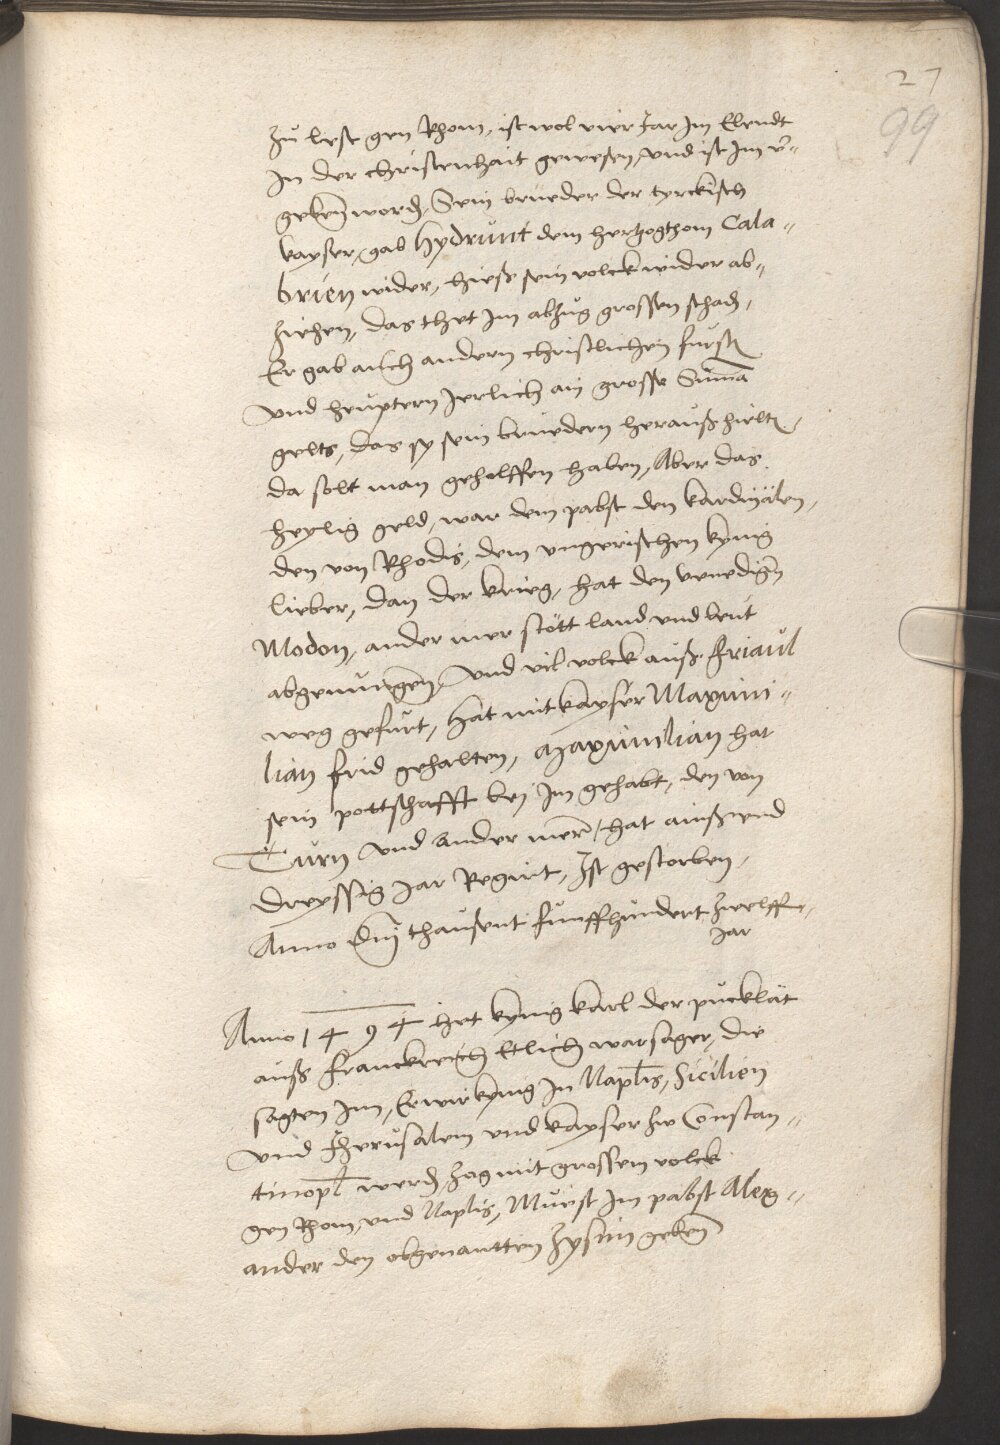 27
99
zu lest gen Rhom, ist wol vier Jar Jm Elendt
Jn der christenhait gewesen, vnd ist Jm v̄-
geben̄ word̄, Sein brueder der tyrckisch
kayser, gab hydrunt dem hertzogthom Cala-
brien wider, hieß sein volck wider ab-
ziehen, das thet Jm abzug grossen schad̄,
Er gab auch andern christlichen furst̄
vnd heuptern Jerlich ain grosse Sum̄a
gelts, das sy sein bruedern heraußhielt̄,
da solt man geholffen haben, Aber das
heylig geld, war dem pabst den kardinälen,
den von Rhodis, dem vngerischen kynig
lieber, dan der krieg, hat den venedign̄
Modon, ander mer stött land vnd leut
abgenungen̄, vnd vil volck auß friaul
weg gefurt, hat mit kayser Maximi-
lian frid gehalten, Maximilian hat
sein pottschafft bey Jm gehabt, den von
Turn vnd ander mere, hat ainßvnd
dreyssig Jar Regirt, Jst gestorben,
Anno Dn̄j thausent funffhundert zwelff-
Jar
Anno 1494 het kynig karl der pucklät
auß franckreich Etlich warsager, die
sagten Jm, Er wir kynig Jn Naplis, Sicilien
vnd Jherusalem vnd kayser zw Constan-
tinopl werd̄, zog mit grossem volck
gen Rhom, vnd Naplis, Muest Jm pabst Alex-
ander den obgenantten Zysim geben̄